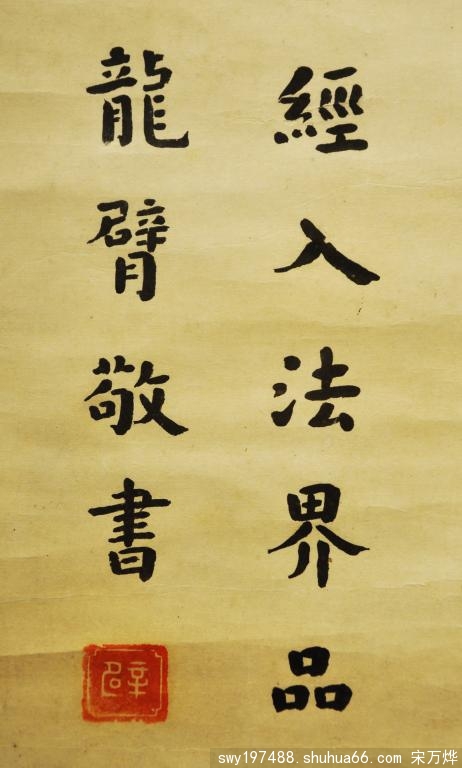 經入法界品
龍臂敬書
臂
swy197488.shuhua66.com 宋万烨